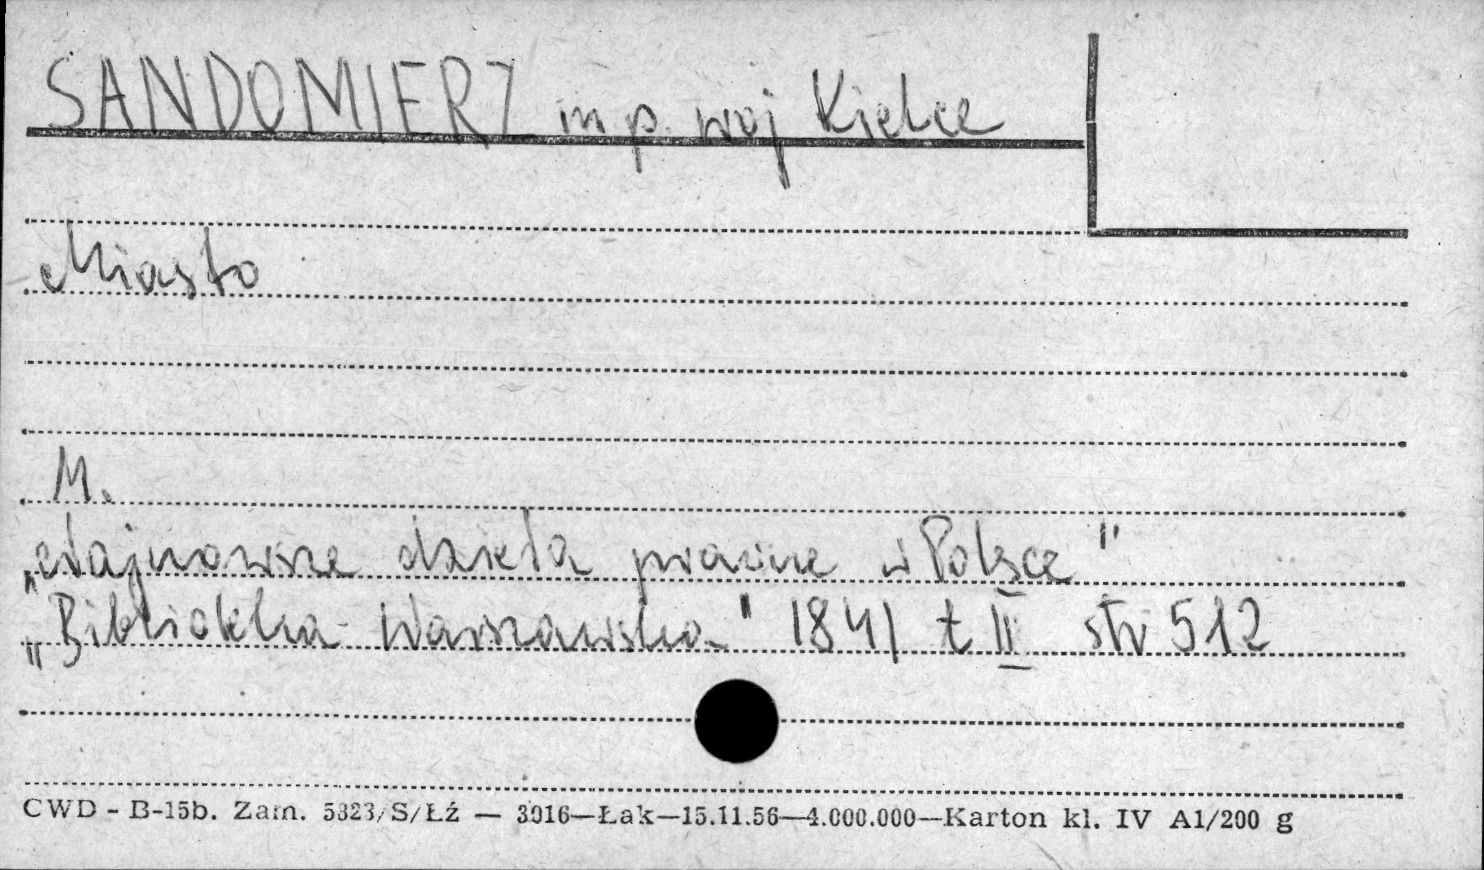 SANDOMIERZ m p. woj Kielce
Miasto
M.
„Najnowsze dzieła prawne w Polsce"
„Biblioteka Warszawska" 1841 t II str 512
CWD - B-15b. Zam. 5323/S/Łź — 3016—Łak—15.11.56—4.000.000—Karton kl. IV A1/200 g